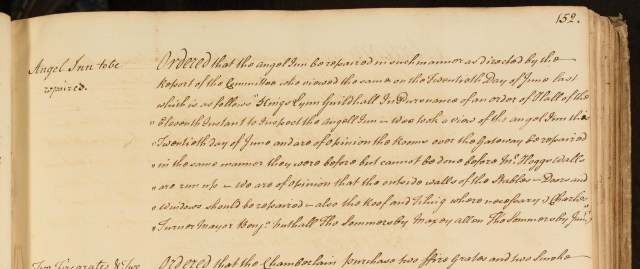 152.
Angel Inn to be
repaired.
Ordered that the angel Inn be repaired in such manner as directed by the
Report of the Committee who viewed the same on the Twentieth Day of June last
which is as follows "Kings Lynn Guildhall In Pursuance of an order of Hall of the
" Eleventh Instant to Inspect the angell Inn – Wee took a view of the angel Inn this
" Twentieth day of June and are of opinion the Rooms over the Gateway be repaired
" in the same manner they were before but cannot be done before Mr. Hoggs Walls
" are run up – We are of opinion that the outside walls of the Stables – Doors and
" Windows should be repaired – also the Roof and Tiling where necessary) Charles
" Turner Mayor Benj. Nuthall Tho Sommersby Maxey allen Tho Sommersby Junr.)
Ordered that the Chamberlain purchase two ffire Grates and two Smoke